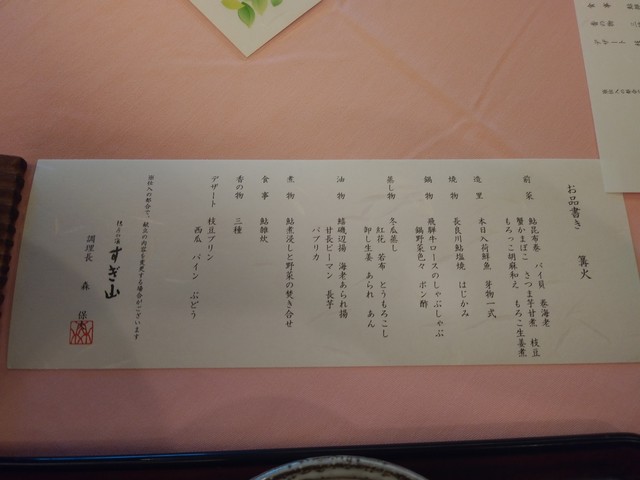 お品書き　篝火
前菜　鮎昆布巻　バイ貝　巻海老
蟹かまぼこ　さつま芋甘煮　枝豆
もろっこ胡麻和え　もろこ生姜煮
造里　本日入荷鮮魚　芽物一式
焼物　長良川鮎塩焼　はじかみ
鍋物　飛騨牛ロースのしゃぶしゃぶ
鍋野菜色々　ポン酢
蒸し物　冬瓜蒸し
紅花　若布　とうもろこし
卸し生姜　あられ　あん
油物　鱚磯辺揚　海老あられ揚
甘長ピーマン　長芋
パプリカ
煮物　鮎煮浸しと野菜の焚き合せ
食事　鮎雑炊
香の物　三種
デザート　枝豆プリン
西瓜　パイン　ぶどう
仕入の都合で、献立の内容を変更する場合がございます
すぎ山
調理長　森　保